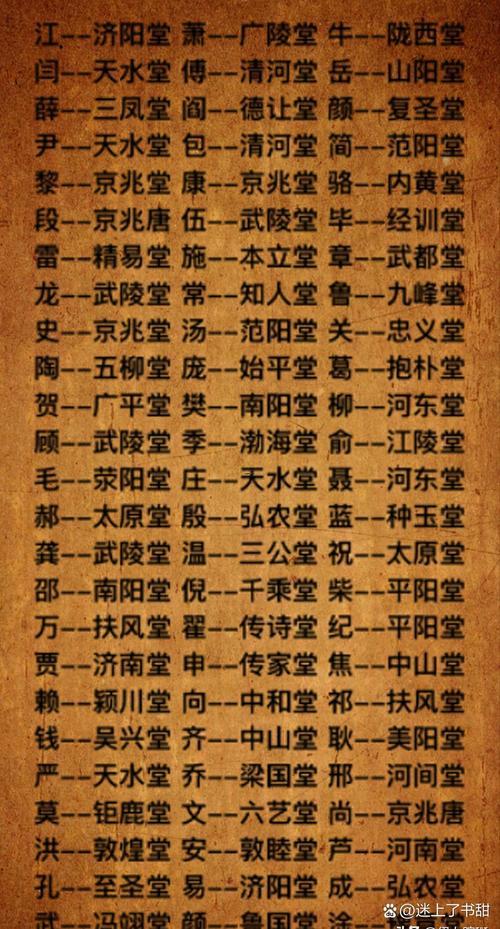 江--济阳堂 萧--广陵堂 牛--陇西堂
闫--天水堂 傅--清河堂 岳--山阳堂
薛--三凤堂 阎--德让堂 颜--复圣堂
尹--天水堂 包--清河堂 简--范阳堂
黎--京兆堂 康--京兆堂 骆--内黄堂
段--京兆唐 伍--武陵堂 毕--经训堂
雷--精易堂 施--本立堂 章--武都堂
龙--武陵堂 常--知人堂 鲁--九峰堂
史--京兆堂 汤--范阳堂 关--忠义堂
陶--五柳堂 庞--始平堂 葛--抱朴堂
贺--广平堂 樊--南阳堂 柳--河东堂
顾--武陵堂 季--渤海堂 俞--江陵堂
毛--荥阳堂 庄--天水堂 聂--河东堂
郝--太原堂 殷--弘农堂 蓝--种玉堂
龚--武陵堂 温--三公堂 祝--太原堂
邵--南阳堂 倪--千乘堂 柴--平阳堂
万--扶风堂 翟--传诗堂 纪--平阳堂
贾--济南堂 申--传家堂 焦--中山堂
赖--颍川堂 向--中和堂 祁--扶风堂
钱--吴兴堂 齐--中山堂 耿--美阳堂
严--天水堂 乔--梁国堂 邢--河间堂
莫--钜鹿堂 文--六艺堂 尚--京兆唐
洪--敦煌堂 安--敦睦堂 芦--河南堂
孔--至圣堂 易--济阳堂 成--弘农堂
武--冯翊堂 颜--鲁国堂 涂--
@迷上了书甜